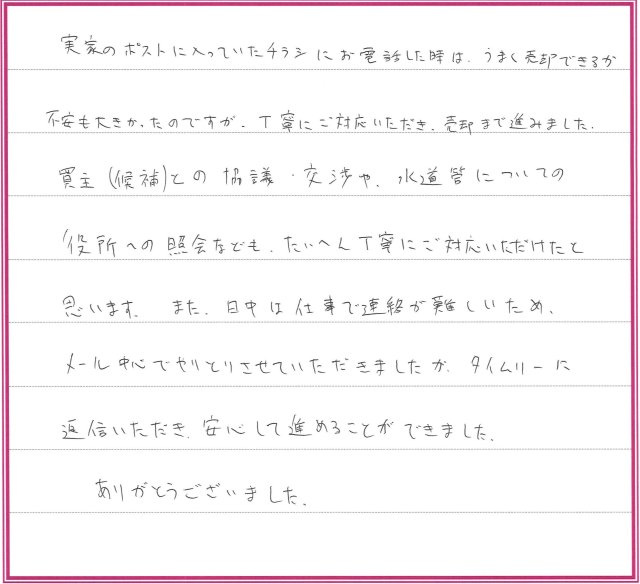 実家のポストに入っていたチラシにお電話した時は、うまく売却できるか
不安も大きかったのですが、丁寧にご対応いただき、売却まで進みました。
買主(候補)との協議・交渉や、水道管についての
役所への照会なども、たいへん丁寧にご対応いただけたと
思います。 また、日中は仕事で連絡が難しいため、
メール中心でやりとりさせていただきましたが、タイムリーに
返信いただき、安心して進めることができました。
ありがとうございました。